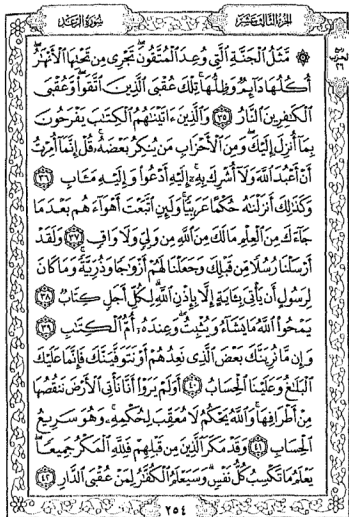 الجزء الثالث عشر
سورة الرعد
۞ مَّثَلُ الْجَنَّةِ الَّتِي وُعِدَ الْمُتَّقُونَ تَجْرِي مِن تَحْتِهَا الْأَنْهَٰرُ
أُكُلُهَا دَآئِمٌ وَظِلُّهَا تِلْكَ عُقْبَى الَّذِينَ اتَّقَوا۟ وَّعُقْبَى
الْكَٰفِرِينَ النَّارُ ٣٥ وَالَّذِينَ ءَاتَيْنَٰهُمُ الْكِتَٰبَ يَفْرَحُونَ
بِمَآ أُنزِلَ إِلَيْكَ وَمِنَ الْأَحْزَابِ مَن يُنكِرُ بَعْضَهُۥ قُلْ إِنَّمَآ أُمِرْتُ
أَنْ أَعْبُدَ اللَّهَ وَلَآ أُشْرِكَ بِهِۦٓ إِلَيْهِ أَدْعُوا۟ وَإِلَيْهِ مَـَٔابِ ٣٦
وَكَذَٰلِكَ أَنزَلْنَٰهُ حُكْمًا عَرَبِيًّا وَلَئِنِ اتَّبَعْتَ أَهْوَآءَهُم بَعْدَ مَا
جَآءَكَ مِنَ الْعِلْمِ مَا لَكَ مِنَ اللَّهِ مِن وَلِيٍّ وَلَا وَاقٍ ٣٧ وَلَقَدْ
أَرْسَلْنَا رُسُلًا مِّن قَبْلِكَ وَجَعَلْنَا لَهُمْ أَزْوَٰجًا وَذُرِّيَّةً وَمَا كَانَ
لِرَسُولٍ أَن يَأْتِيَ بِـَٔايَةٍ إِلَّا بِإِذْنِ اللَّهِ لِكُلِّ أَجَلٍ كِتَابٌ ٣٨
يَمْحُوا۟ اللَّهُ مَا يَشَآءُ وَيُثْبِتُ وَعِندَهُۥٓ أُمُّ الْكِتَٰبِ ٣٩
وَإِن مَّا نُرِيَنَّكَ بَعْضَ الَّذِي نَعِدُهُمْ أَوْ نَتَوَفَّيَنَّكَ فَإِنَّمَا عَلَيْكَ
الْبَلَٰغُ وَعَلَيْنَا الْحِسَابُ ٤٠ أَوَلَمْ يَرَوْا۟ أَنَّا نَأْتِي الْأَرْضَ نَنقُصُهَا
مِنْ أَطْرَافِهَا وَاللَّهُ يَحْكُمُ لَا مُعَقِّبَ لِحُكْمِهِۦ وَهُوَ سَرِيعُ
الْحِسَابِ ٤١ وَقَدْ مَكَرَ الَّذِينَ مِن قَبْلِهِمْ فَلِلَّهِ الْمَكْرُ جَمِيعًا
يَعْلَمُ مَا تَكْسِبُ كُلُّ نَفْسٍ وَسَيَعْلَمُ الْكُفَّٰرُ لِمَنْ عُقْبَى الدَّارِ ٤٢
٢٥٤